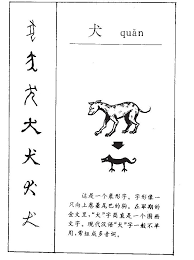 犬 quǎn
犬
犬
犬
这是一个象形字。字形像一
只向上卷着尾巴的狗。在早期的
金文里,“犬”字简直是一个图画
文字。现代汉语“犬”字一般不单
用,常组成多音词。